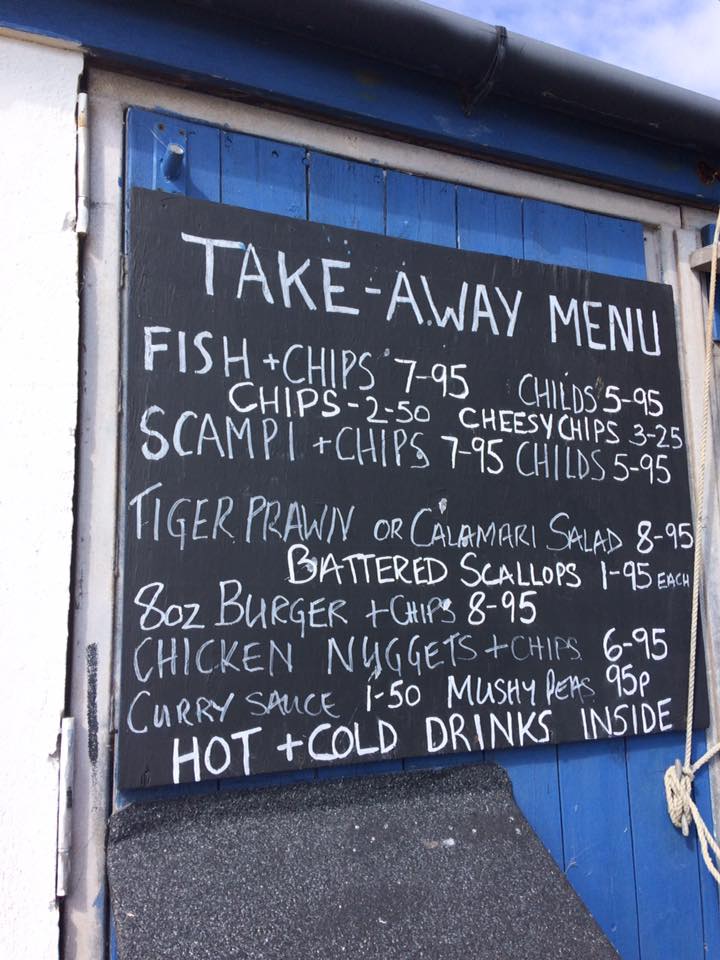 TAKE-AWAY MENU
FISH + CHIPS 7-95 CHILDS 5-95
CHIPS - 2-50 CHEESY CHIPS 3-25
SCAMPI + CHIPS 7-95 CHILDS 5-95
TIGER PRAWN OR CALAMARI SALAD 8-95
BATTERED SCALLOPS 1-95 EACH
8oz BURGER + CHIPS 8-95
CHICKEN NUGGETS + CHIPS 6-95
CURRY SAUCE 1-50 MUSHY PEAS 95p
HOT + COLD DRINKS INSIDE